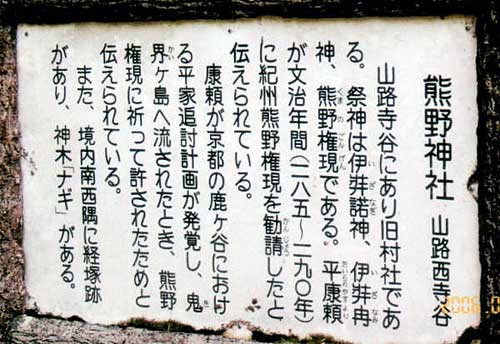 熊野神社 山路西寺谷
山路寺谷にあり旧村社であ
る。祭神は伊弉諾神、伊弉冉
神、熊野権現である。平康頼
が文治年間(一一八五〜一一九〇年)
に紀州熊野権現を勧請したと
伝えられている。
康頼が京都の鹿ヶ谷におけ
る平家追討計画が発覚し、鬼
界ヶ島へ流されたとき、熊野
権現に祈って許されたためと
伝えられている。
また、境内南西隅に経塚跡
があり、神木「ナギ」がある。